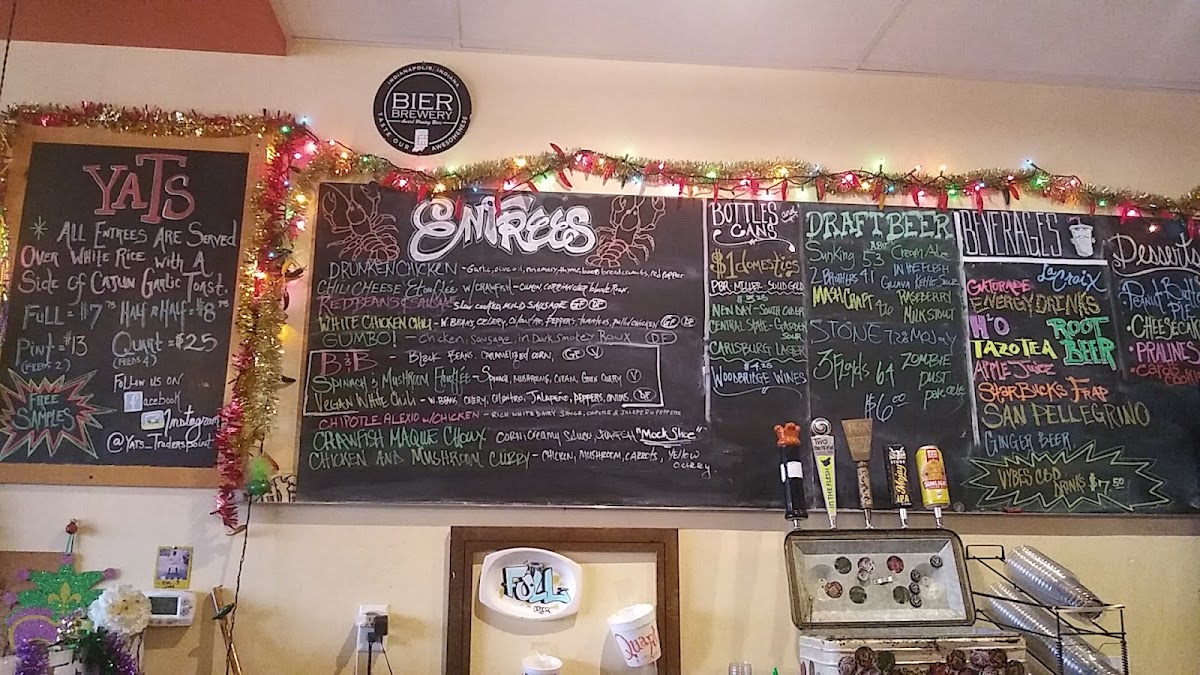 YATS
* ALL ENTREES ARE SERVED
OVER WHITE RICE WITH A
SIDE OF CAJUN GARLIC TOAST.
FULL = $7.75 HALF & HALF = $8.75
PINT = $13 QUART = $25
(FEEDS 2) (FEEDS 4)
FREE
SAMPLES
FOLLOW US ON
Facebook
Instagram
INDIANAPOLIS, INDIANA
BIER
BREWERY
Award Winning Beer
TASTE OUR AWESOMENESS
ENTREES
DRUNKEN CHICKEN - Garlic, olive oil, rosemary, thyme, beer, breadcrumbs, red pepper
CHILI CHEESE Etouffée W/ CRAWFISH
RED BEANS & SAUSAGE Slow cooked, mild sausage GF DF
WHITE CHICKEN CHILI - W. BEANS, CELERY, Cilantro, PEPPERS, tomatoes, pulled chicken GF DF
GUMBO! - chicken, sausage in Dark Smokey Roux DF
B&B - Black Beans, Caramelized Corn, GF V
SPINACH & MUSHROOM Etouffée - Spinach, mushrooms, cream, V
VEGAN WHITE Chili - W. BEANS, CELERY, Cilantro, Jalapeño, PEPPERS, ONIONS
CHIPOTLE ALEXIO W/ CHICKEN - RICH WHITE DAIRY SAUCE, CHIPOTLE & JALAPENO PEPPERS
CRAWFISH MAQUE CHOUX CORN, CREAMY SAUCE, CRAWFISH "Mock Shoe"
CHICKEN AND MUSHROOM CURRY - CHICKEN, MUSHROOM, CARROTS, YELLOW
CURRY
BOTTLES and
CANS
$1 domestics
PBR MILLER SOLID GOLD
NEW DAY - SOUTH CIDER
CENTRAL STATE - GARDEN
SOUR
CARLSBURG LAGER
WOODBRIDGE WINES
DRAFT BEER
SunKing 5.3 Cream Ale
2 BROTHERS 41 IN THE FLESH
GUAVA KETTLE SOUR
RASPBERRY
MILK STOUT
STONE
3 FLOYDS 6.4 ZOMBIE
DUST
pale ale
$6.00
BEVERAGES
LaCroix
GATORADE
ENERGY DRINKS
H2O
ROOT
BEER
TAZO TEA
APPLE JUICE
STARBUCKS FRAP
SAN PELLEGRINO
GINGER BEER
VYBES CBD
DRINKS $7.50
Desserts
Peanut Butt
PIE
• CHEESECA
PRALINES
IN THE FLESH
STONE
IPA
FULL
Quart